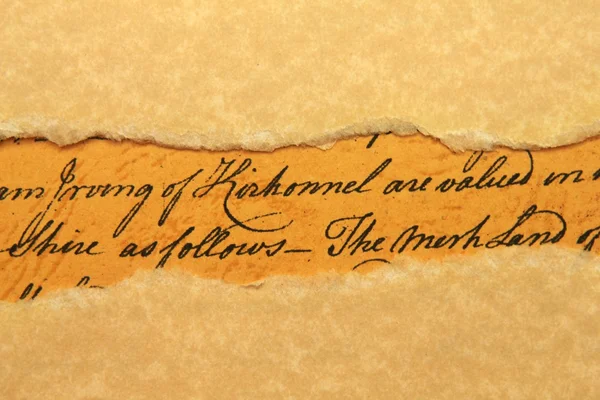 am Irving of Kirkonnel are valued in
Shire as follows — The Merk Land of